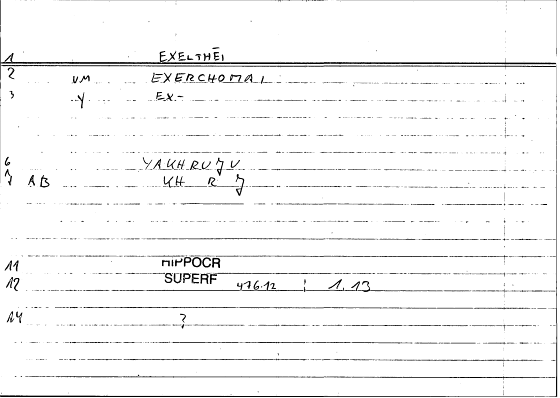 1 EXELTHĒI
2 VM EXERCHOMAI
3 Y EX-
6 YAKHRUJU
7 AB KH R J
11 HIPPOCR
12 SUPERF 476.12 | 1.13
14 ?